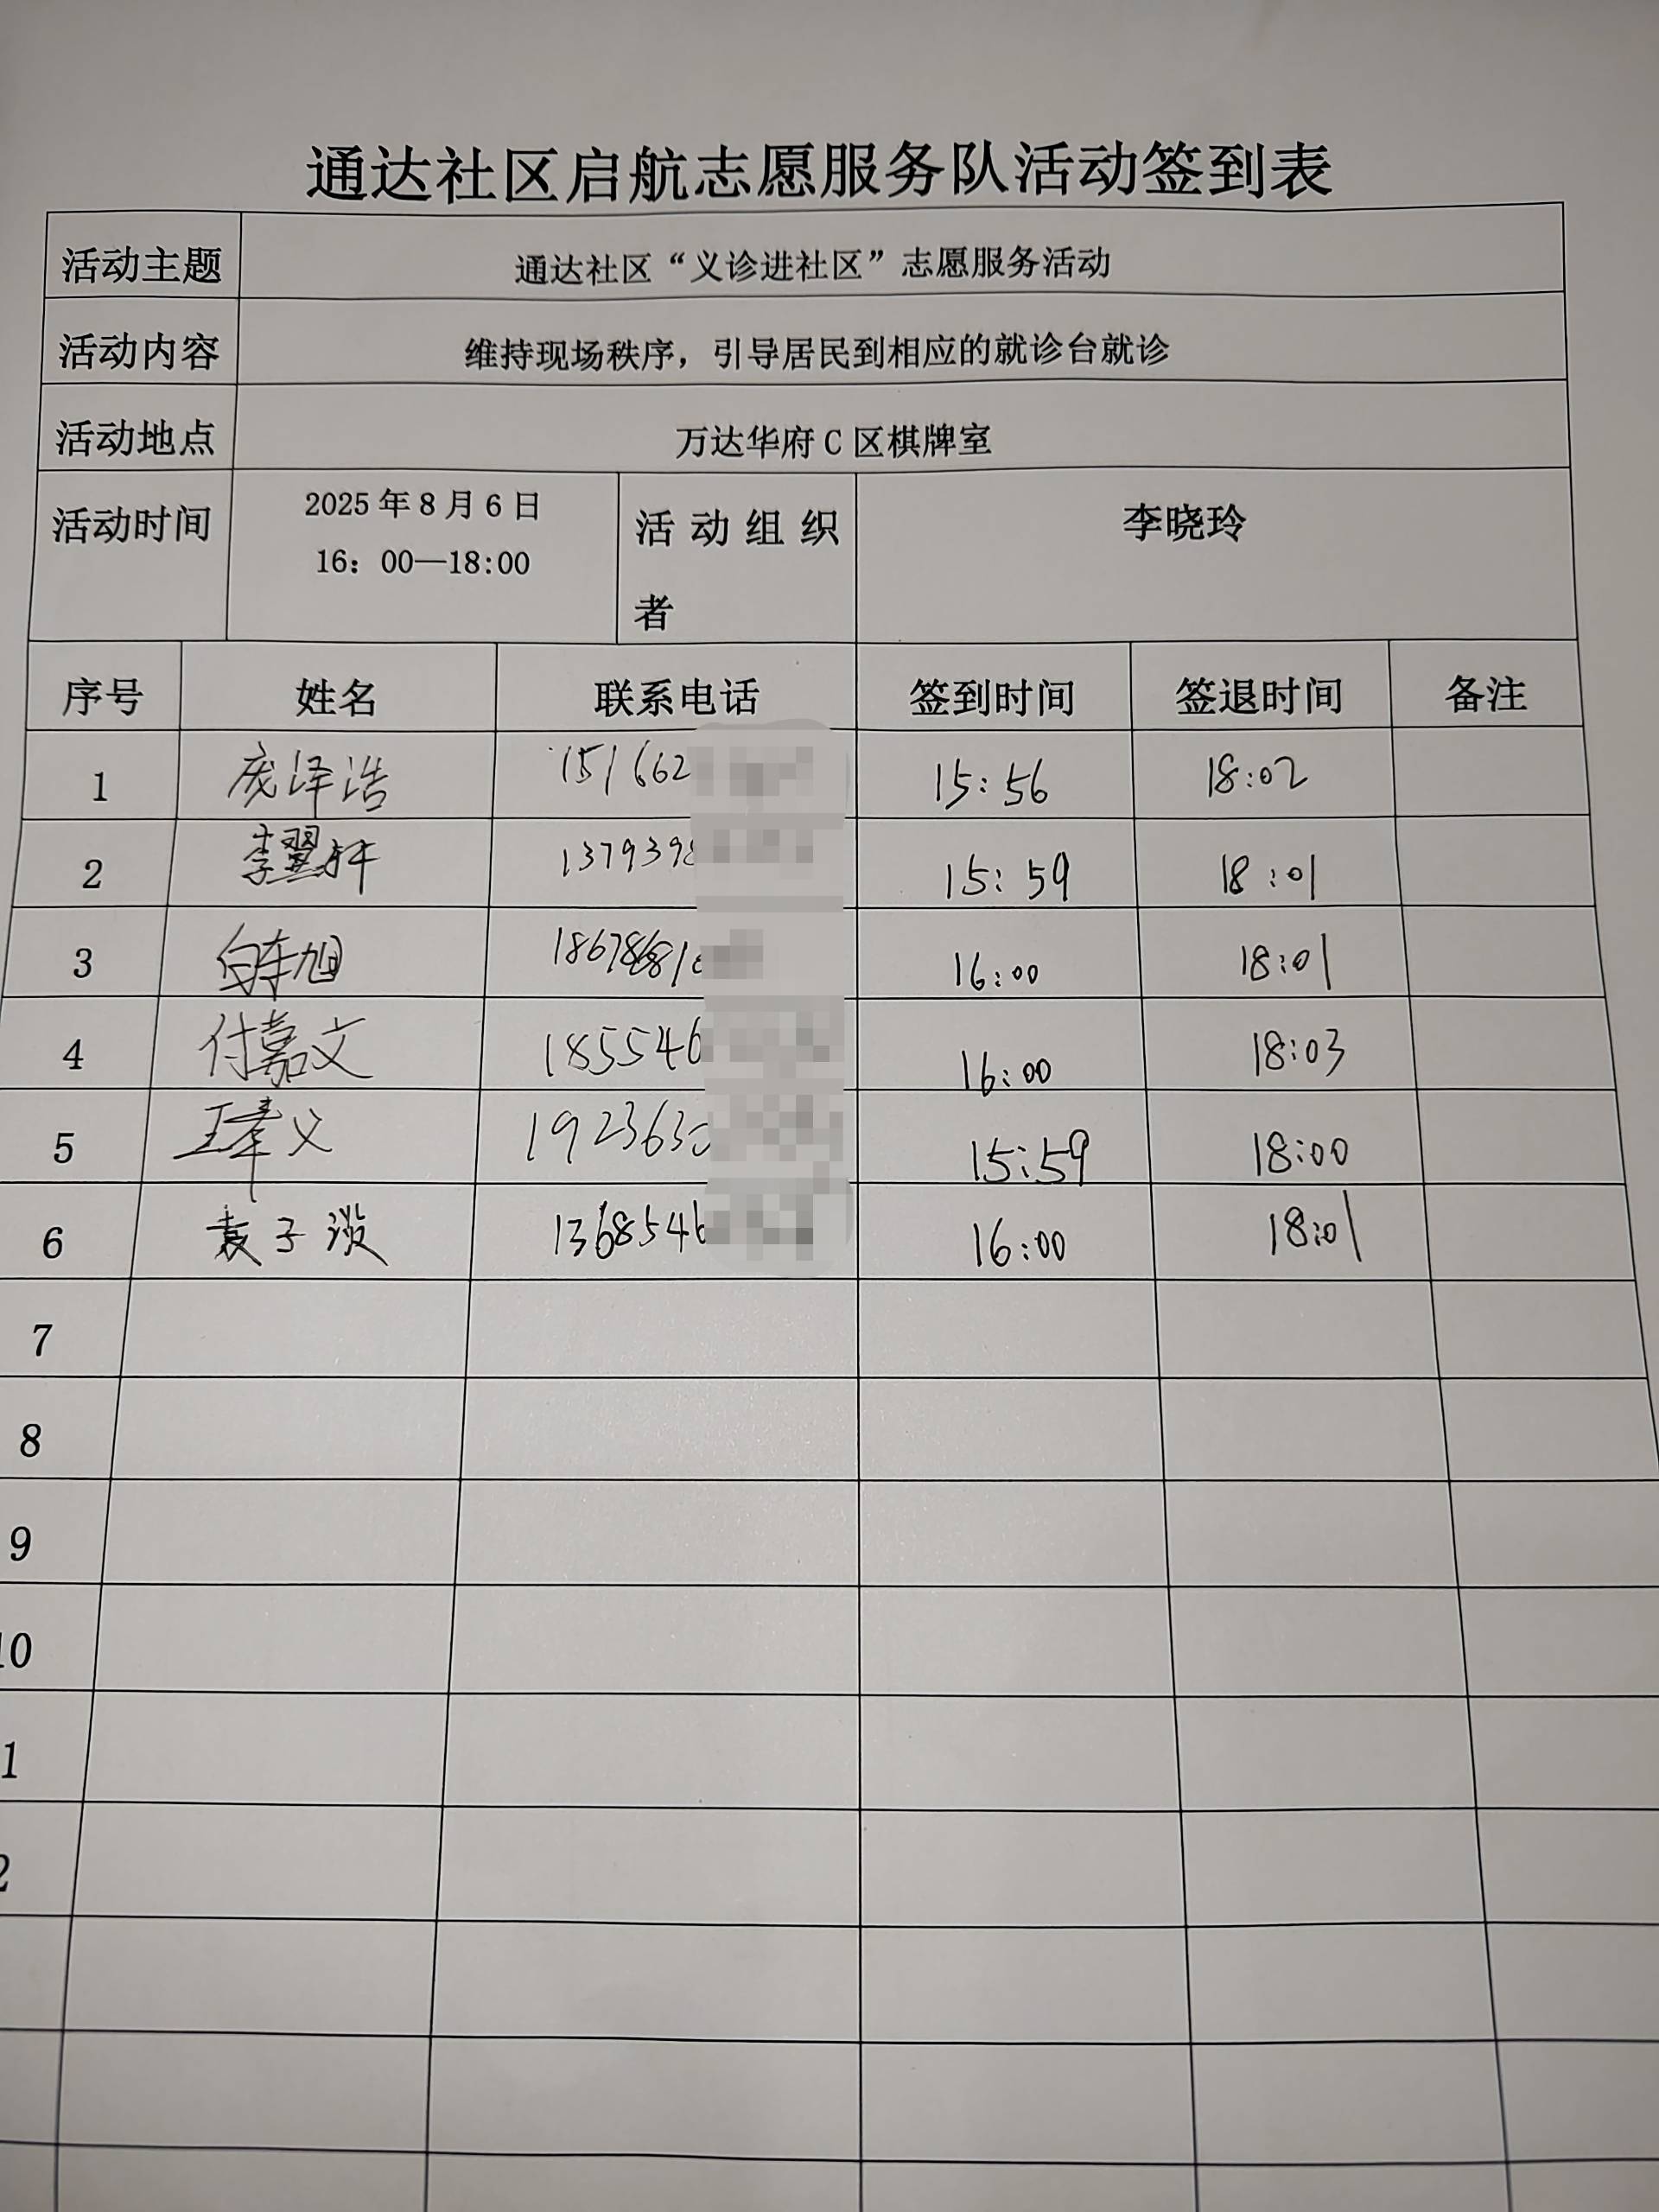 通达社区启航志愿服务队活动签到表
活动主题 通达社区“义诊进社区”志愿服务活动
活动内容 维持现场秩序，引导居民到相应的就诊台就诊
活动地点 万达华府 C 区棋牌室
活动时间 2025 年 8 月 6 日 16：00—18:00 活动组织者 李晓玲
序号 姓名 联系电话 签到时间 签退时间 备注
1 庞泽浩 151662 15:56 18:02
2 李翌轩 1379398 15:59 18:01
3 旭 16:00 18:01
4 付嘉文 185546 16:00 18:03
5 王 义 192363 15:59 18:00
6 袁子 1368546 16:00 18:01
7
8
9
10
1
2